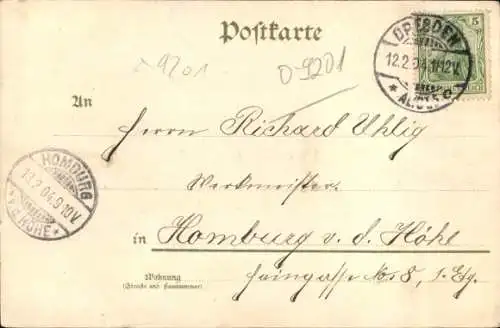 Postkarte
D-9201
9201
5
DRESDEN
12.2.04.11-12V.
An
Herrn Richard Uhlig
HOMBURG
13.2.04.9-10V.
HÖHE
Werkmeister
in Homburg v. d. Höhe
Wohnung
(Straße und Hausnummer)
No 8, 1. Etg.